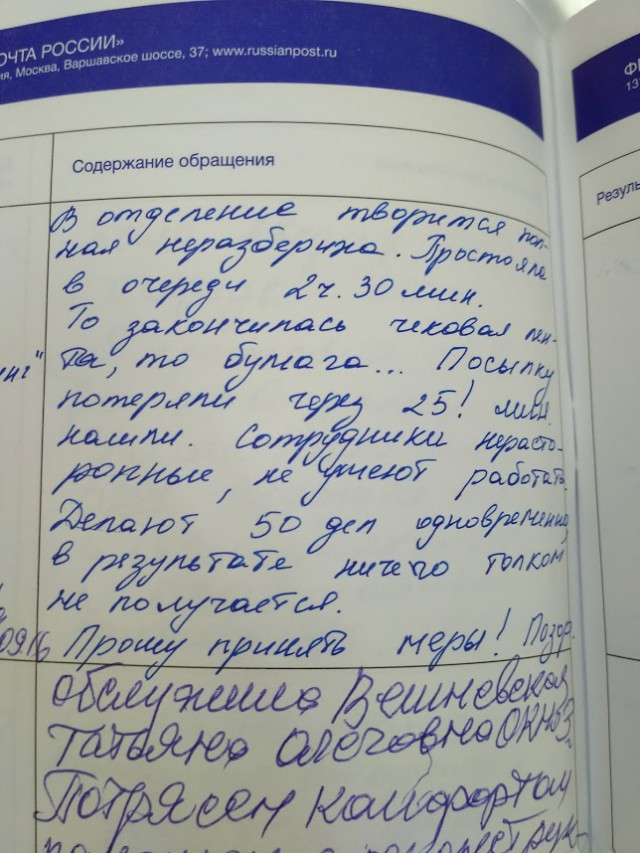 ОЧТА РОССИИ»
ия, Москва, Варшавское шоссе, 37; www.russianpost.ru
Содержание обращения
В отделение творится пол-
ная неразбериха. Простояла
в очереди 2ч. 30 мин.
То закончилась чековая лен-
та, то бумага... Посылку
потеряли через 25! мин.
нашли. Сотрудники нерасто-
ропные, не умеют работать.
Делают 50 дел одновременно,
в результате ничего толком
не получается.
Прошу принять меры! Позор.
обслужила Вешневская
Татьяна Олеговна ОКНО 3.
Потрясен комфортом
нг"
09.16
Ф
13
Резуль